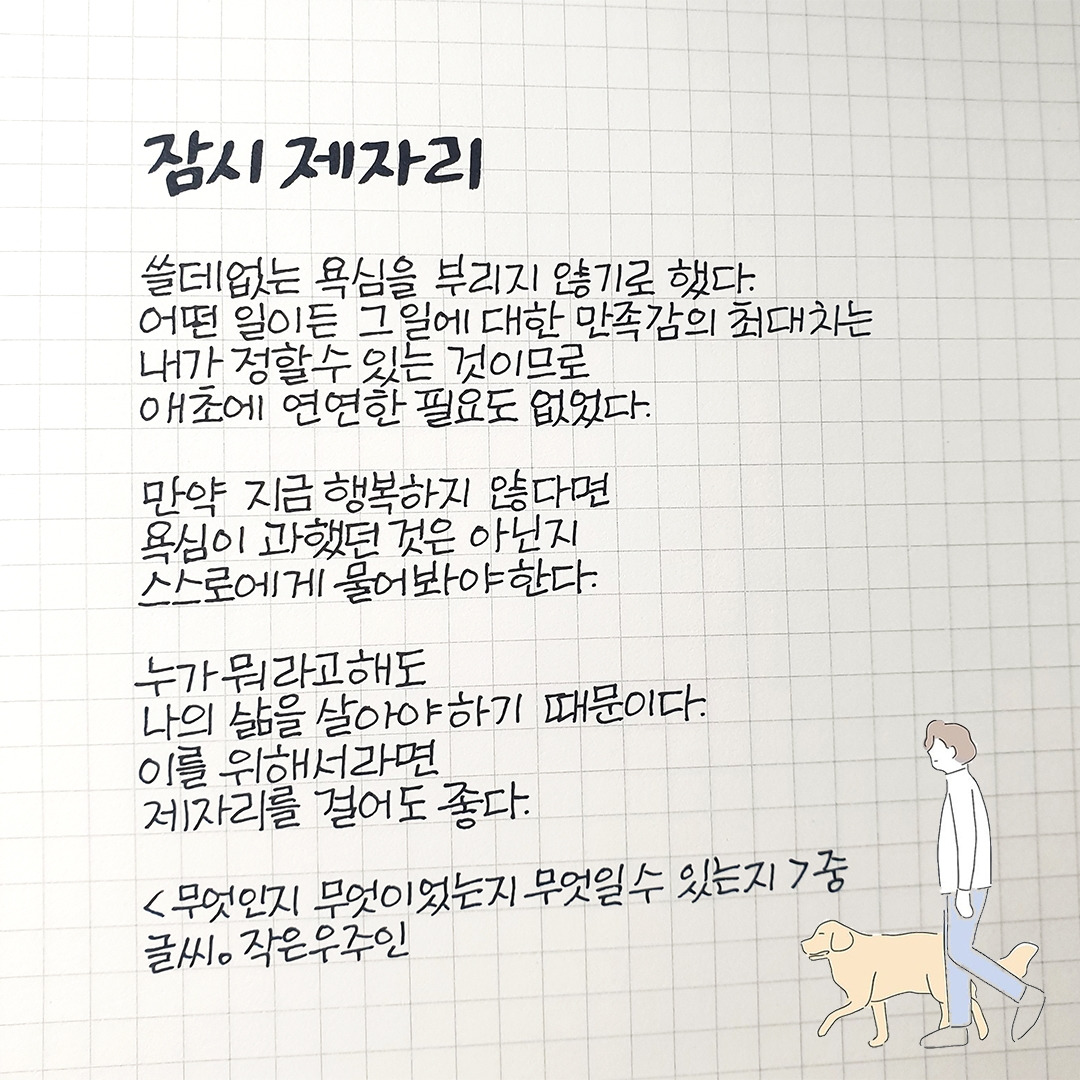 잠시 제자리
쓸데없는 욕심을 부리지 않기로 했다.
어떤 일이든 그 일에 대한 만족감의 최대치는
내가 정할 수 있는 것이므로
애초에 연연한 필요도 없었다.
만약 지금 행복하지 않다면
욕심이 과했던 것은 아닌지
스스로에게 물어봐야 한다.
누가 뭐라고해도
나의 삶을 살아야 하기 때문이다.
이를 위해서라면
제자리를 걸어도 좋다.
<무엇인지 무엇이었는지 무엇일 수 있는지>중
글씨。작은우주인